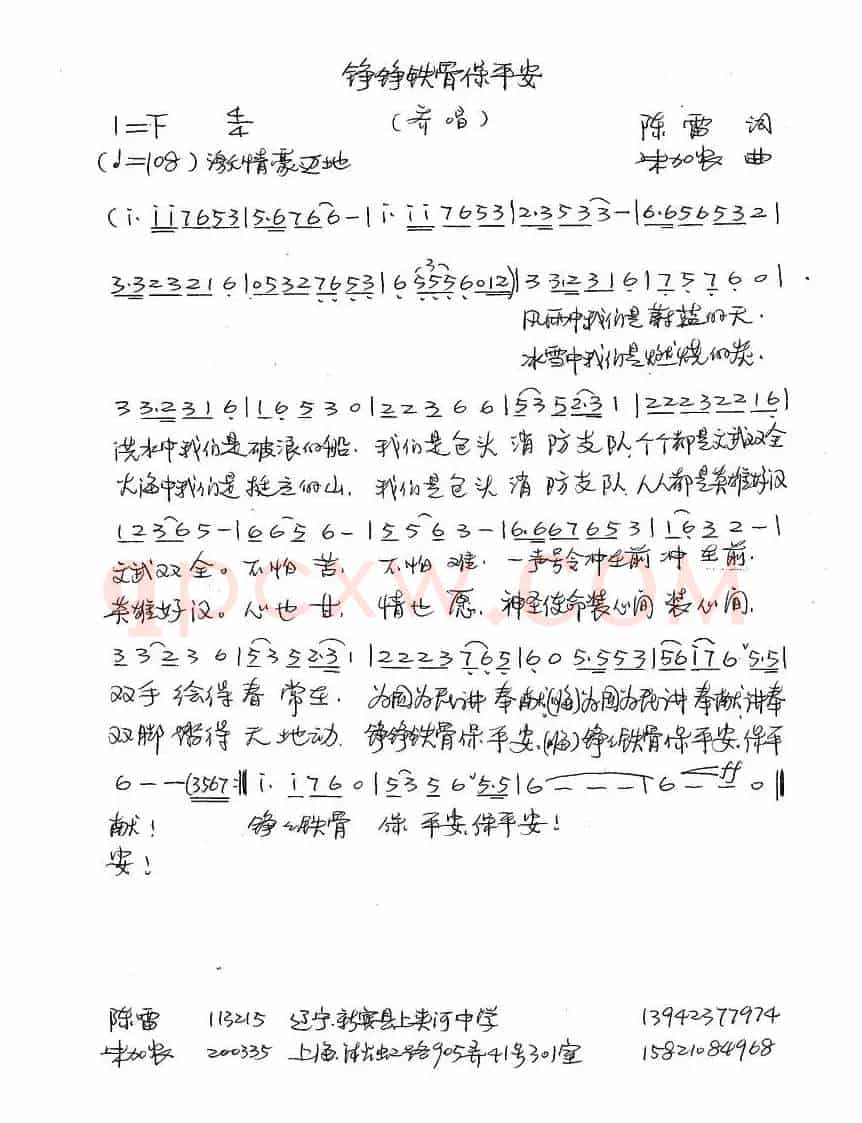 铮铮铁骨保平安
1=F 4/4 (齐唱) 陈雷 词
(♩=108) 激情豪迈地 朱加农 曲
(i· i i 7 6 5 3 | 5·6 7 6 6 - | i· i i 7 6 5 3 | 2·3 5 3 3 - | 6·6 5 6 5 3 2 |
3·3 2 3 2 1 6 | 0 5 3 2 7 6 5 3 | 6 5 5 5 6 0 1 2) | 3 3·2 3 1 6 | 7 5 7 6 0 |
风雨中我们是蔚蓝的天.
冰雪中我们是燃烧的炭.
3 3·2 3 1 6 | 1 6 5 3 0 | 2 2 3 6 6 | 5 3 5 2·3 1 | 2 2 2 3 2 2 1 6 |
洪水中我们是破浪的船. 我们是包头 消 防 支 队, 个个都是文武双全
大海中我们是挺立的山. 我们是包头 消 防 支 队, 人人都是英雄好汉
1 2 3 6 5 - | 6 6 5 6 - | 5 5 6 3 - | 6·6 6 7 6 5 3 | 1 6 3 2 - |
文武双全。不怕 苦, 不怕 难. 一声号令冲在前 冲 在前.
英雄好汉。心也 甘, 情也 愿, 神圣使命装心间 装心间,
qpcxw.com
3 3 2 3 6 | 5 3 5 2·3 1 | 2 2 2 3 7 6 5 | 6 0 5·5 5 3 | 5 6 i 7 6 ˇ 5·5 |
双手 绘得 春 常在. 为国为民讲 奉献,(嗨)为国为民讲 奉献,讲奉
双脚 踏得 天 地动. 铮铮铁骨保 平安,(嗨)铮铮铁骨保平安,保平
6 - - (3567 :‖ i· i 7 6 0 | 5 3 5 6 ˇ 5·5 | 6 - - - | 6 - - 0 ‖ ff
献! 铮铮铁骨 保 平安,保平安!
安!
陈雷 113215 辽宁.新宾县上夹河中学 13942377974
朱加农 200335 上海. 淞虹路905弄41号301室 15821084968